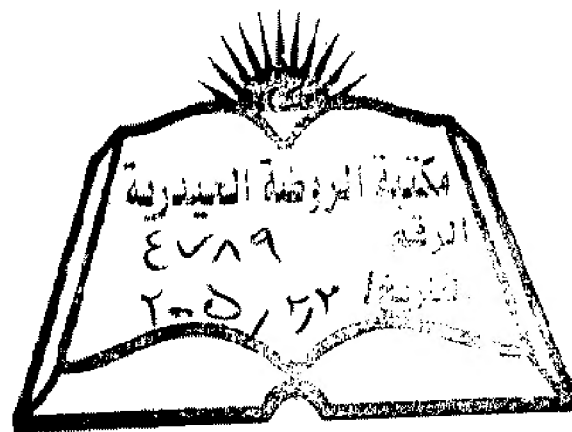 مكتبة الروضة الحيدرية
الرقم ٤٧٨٩
التاريخ /